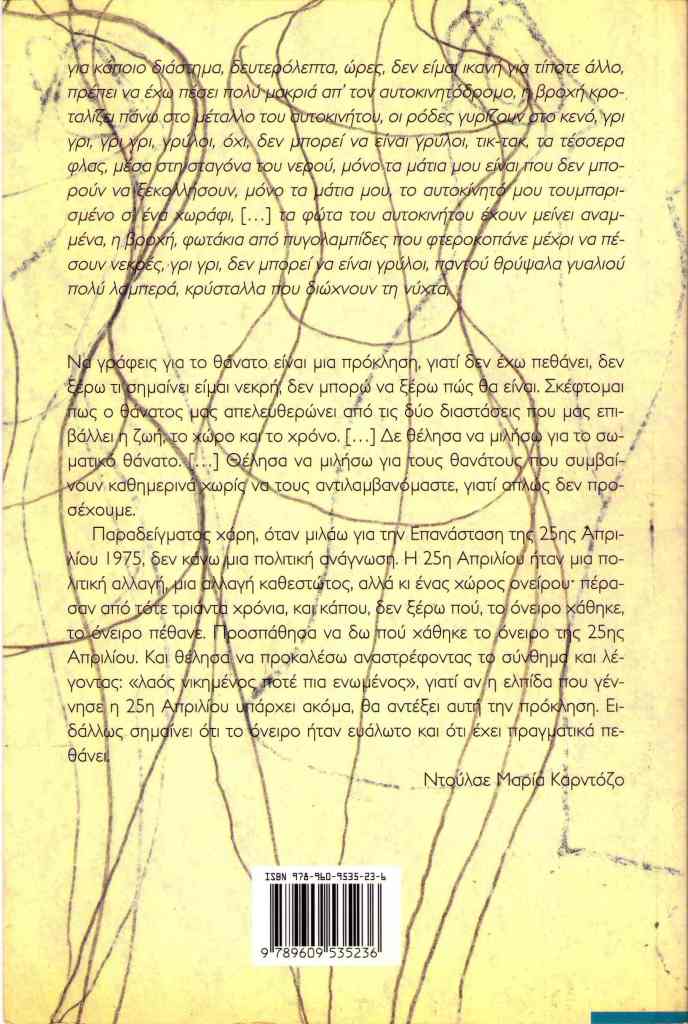 για κάποιο διάστημα, δευτερόλεπτα, ώρες, δεν είμαι ικανή για τίποτε άλλο,
πρέπει να έχω πέσει πολύ μακριά απ' τον αυτοκινητόδρομο, η βροχή κρο-
ταλίζει πάνω στο μέταλλο του αυτοκινήτου, οι ρόδες γυρίζουν στο κενό, γρι
γρι, γρι γρι, γρύλοι, όχι, δεν μπορεί να είναι γρύλοι, τικ-τακ, τα τέσσερα
φλας, μέσα στη σταγόνα του νερού, μόνο τα μάτια μου είναι που δεν μπο-
ρούν να ξεκολλήσουν, μόνο τα μάτια μου, το αυτοκίνητό μου τουμπαρι-
σμένο σ' ένα χωράφι, [...] τα φώτα του αυτοκινήτου έχουν μείνει αναμ-
μένα, η βροχή, φωτάκια από πυγολαμπίδες που φτεροκοπάνε μέχρι να πέ-
σουν νεκρές, γρι γρι, δεν μπορεί να είναι γρύλοι, παντού θρύψαλα γυαλιού
πολύ λαμπερά, κρύσταλλα που διώχνουν τη νύχτα,
Να γράφεις για το θάνατο είναι μια πρόκληση, γιατί δεν έχω πεθάνει, δεν
ξέρω τι σημαίνει είμαι νεκρή, δεν μπορώ να ξέρω πώς θα είναι. Σκέφτομαι
πως ο θάνατος μας απελευθερώνει από τις δύο διαστάσεις που μας επι-
βάλλει η ζωή, το χώρο και το χρόνο. [...] Δε θέλησα να μιλήσω για το σω-
ματικό θάνατο. [...] Θέλησα να μιλήσω για τους θανάτους που συμβαί-
νουν καθημερινά χωρίς να τους αντιλαμβανόμαστε, γιατί απλώς δεν προ-
σέχουμε.
Παραδείγματος χάρη, όταν μιλάω για την Επανάσταση της 25ης Απρι-
λίου 1975, δεν κάνω μια πολιτική ανάγνωση. Η 25η Απριλίου ήταν μια πο-
λιτική αλλαγή, μια αλλαγή καθεστώτος, αλλά κι ένας χώρος ονείρου· πέρα-
σαν από τότε τριάντα χρόνια, και κάπου, δεν ξέρω πού, το όνειρο χάθηκε,
το όνειρο πέθανε. Προσπάθησα να δω πού χάθηκε το όνειρο της 25ης
Απριλίου. Και θέλησα να προκαλέσω αναστρέφοντας το σύνθημα και λέ-
γοντας: «λαός νικημένος ποτέ πια ενωμένος», γιατί αν η ελπίδα που γέν-
νησε η 25η Απριλίου υπάρχει ακόμα, θα αντέξει αυτή την πρόκληση. Ει-
δάλλως σημαίνει ότι το όνειρο ήταν ευάλωτο και ότι έχει πραγματικά πε-
θάνει.
Ντούλσε Μαρία Καρντόζο
ISBN 978-960-9535-23-6
9 789609 535236